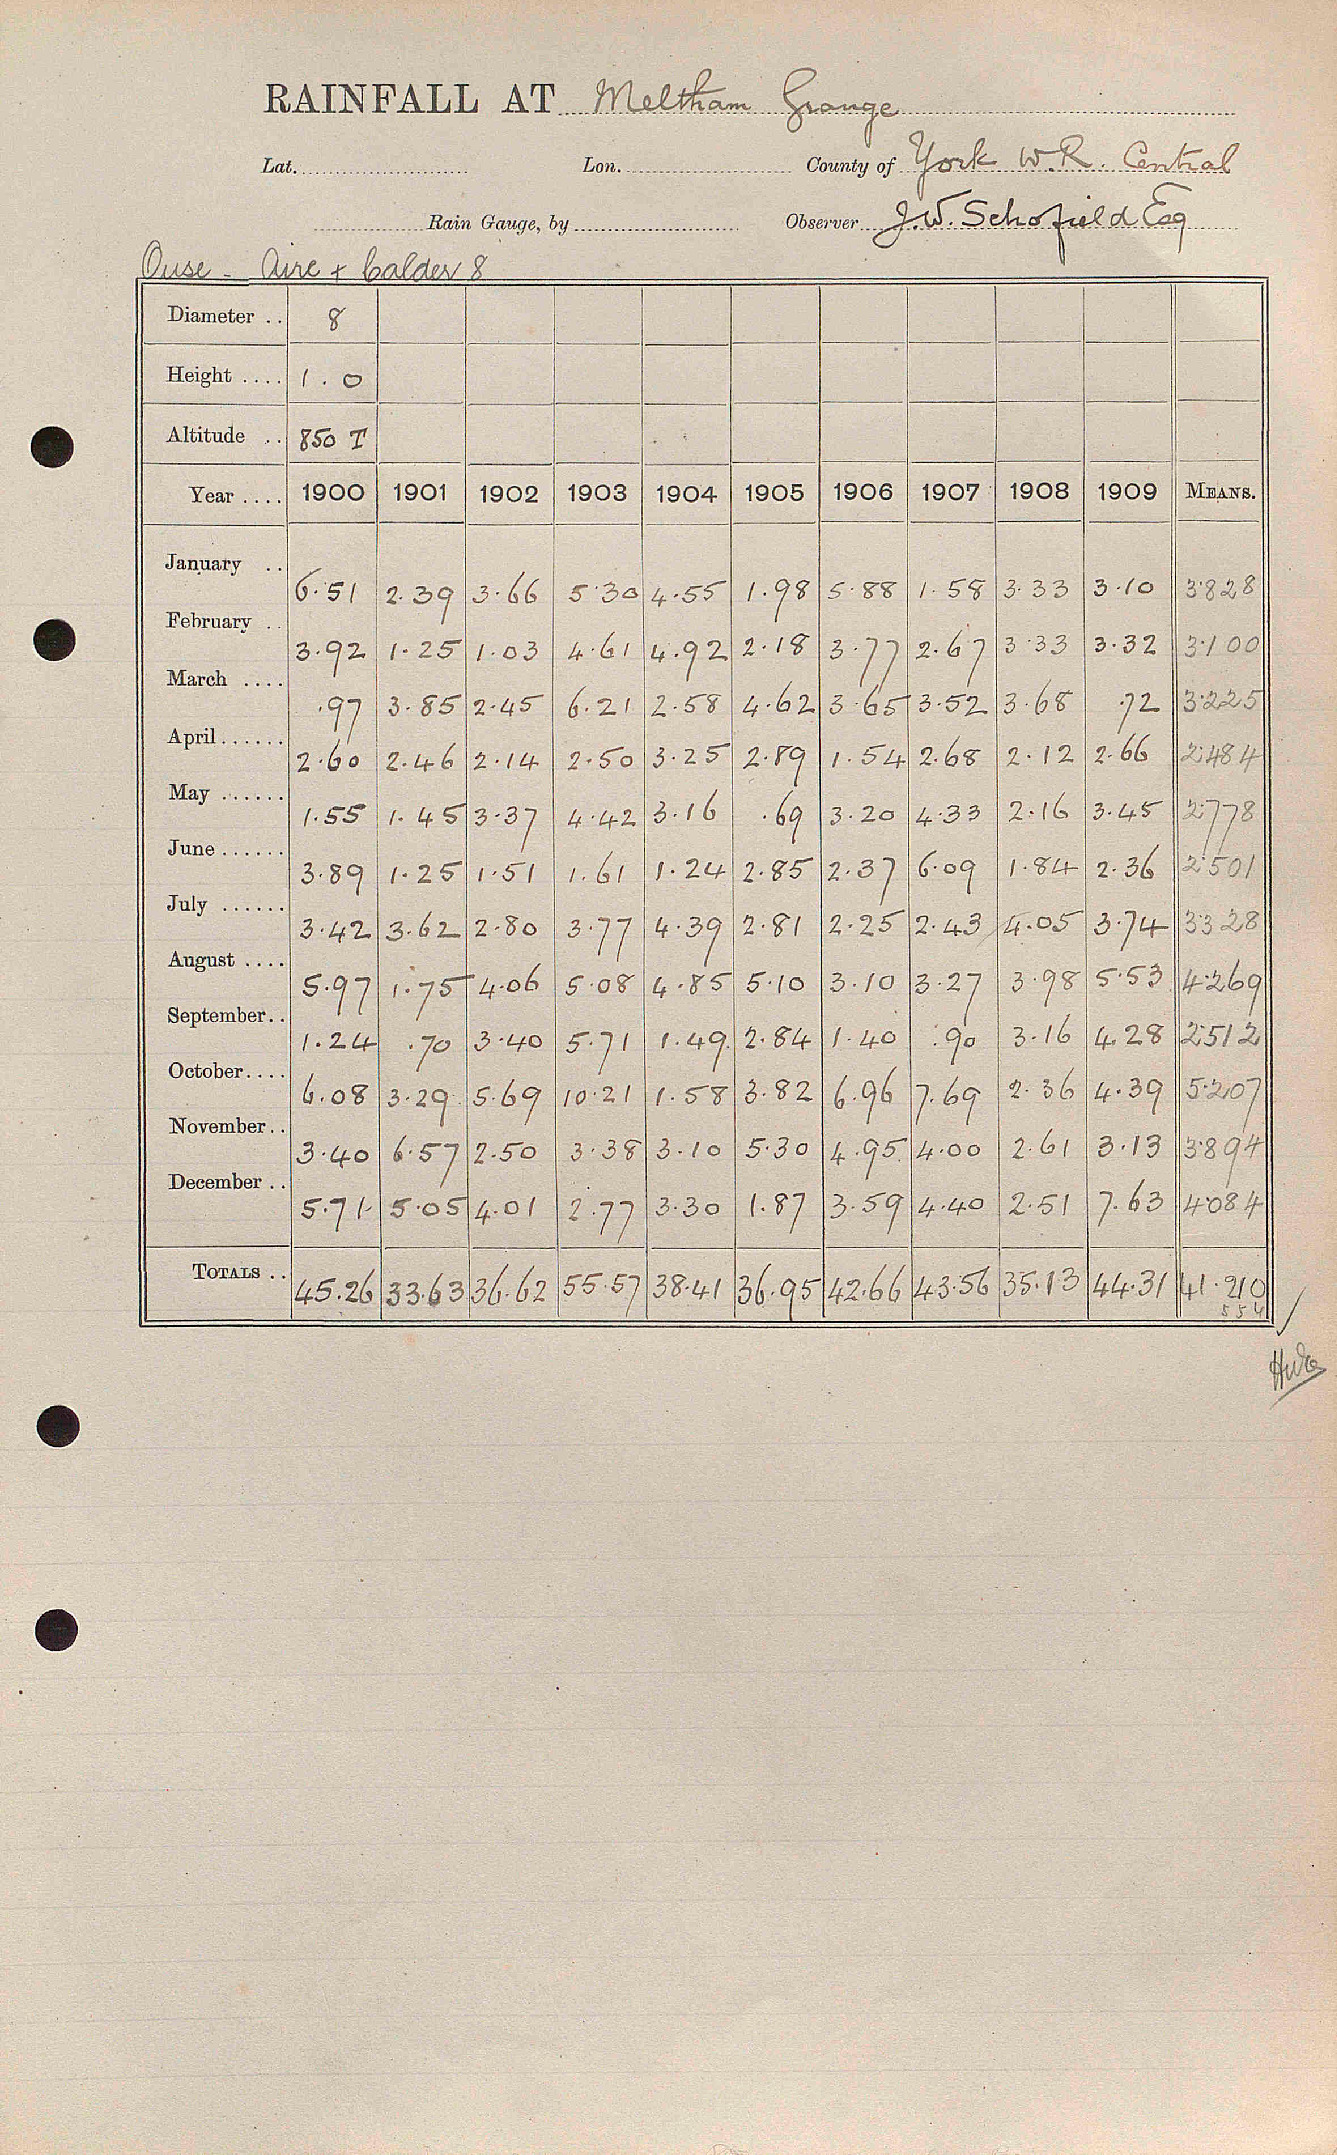 RAINFALL AT Meltham Grange
Lat. Lon. County of York W.R. Central
Rain Gauge, by Observer J.W. Schofield Esq
Ouse - Aire + Calder 8
Diameter .. 8
Height .... 1.0
Altitude .. 850 T
Year .... 1900 1901 1902 1903 1904 1905 1906 1907 1908 1909 MEANS.
January .. 6.51 2.39 3.66 5.30 4.55 1.98 5.88 1.58 3.33 3.10 3.828
February .. 3.92 1.25 1.03 4.61 4.92 2.18 3.77 2.67 3.33 3.32 3.100
March .... .97 3.85 2.45 6.21 2.58 4.62 3.65 3.52 3.68 .72 3.225
April...... 2.60 2.46 2.14 2.50 3.25 2.89 1.54 2.68 2.12 2.66 2.484
May ...... 1.55 1.45 3.37 4.42 3.16 .69 3.20 4.33 2.16 3.45 2.778
June...... 3.89 1.25 1.51 1.61 1.24 2.85 2.37 6.09 1.84 2.36 2.501
July ...... 3.42 3.62 2.80 3.77 4.39 2.81 2.25 2.43 4.05 3.74 3328
August .... 5.97 1.75 4.06 5.08 4.85 5.10 3.10 3.27 3.98 5.53 4.269
September.. 1.24 .70 3.40 5.71 1.49 2.84 1.40 .90 3.16 4.28 2512
October.... 6.08 3.29 5.69 10.21 1.58 3.82 6.96 7.69 2.36 4.39 5.207
November.. 3.40 6.57 2.50 3.38 3.10 5.30 4.95 4.00 2.61 3.13 3.894
December .. 5.71 5.05 4.01 2.77 3.30 1.87 3.59 4.40 2.51 7.63 4.084
TOTALS .. 45.26 33.63 36.62 55.57 38.41 36.95 42.66 43.56 35.13 44.31 41.210